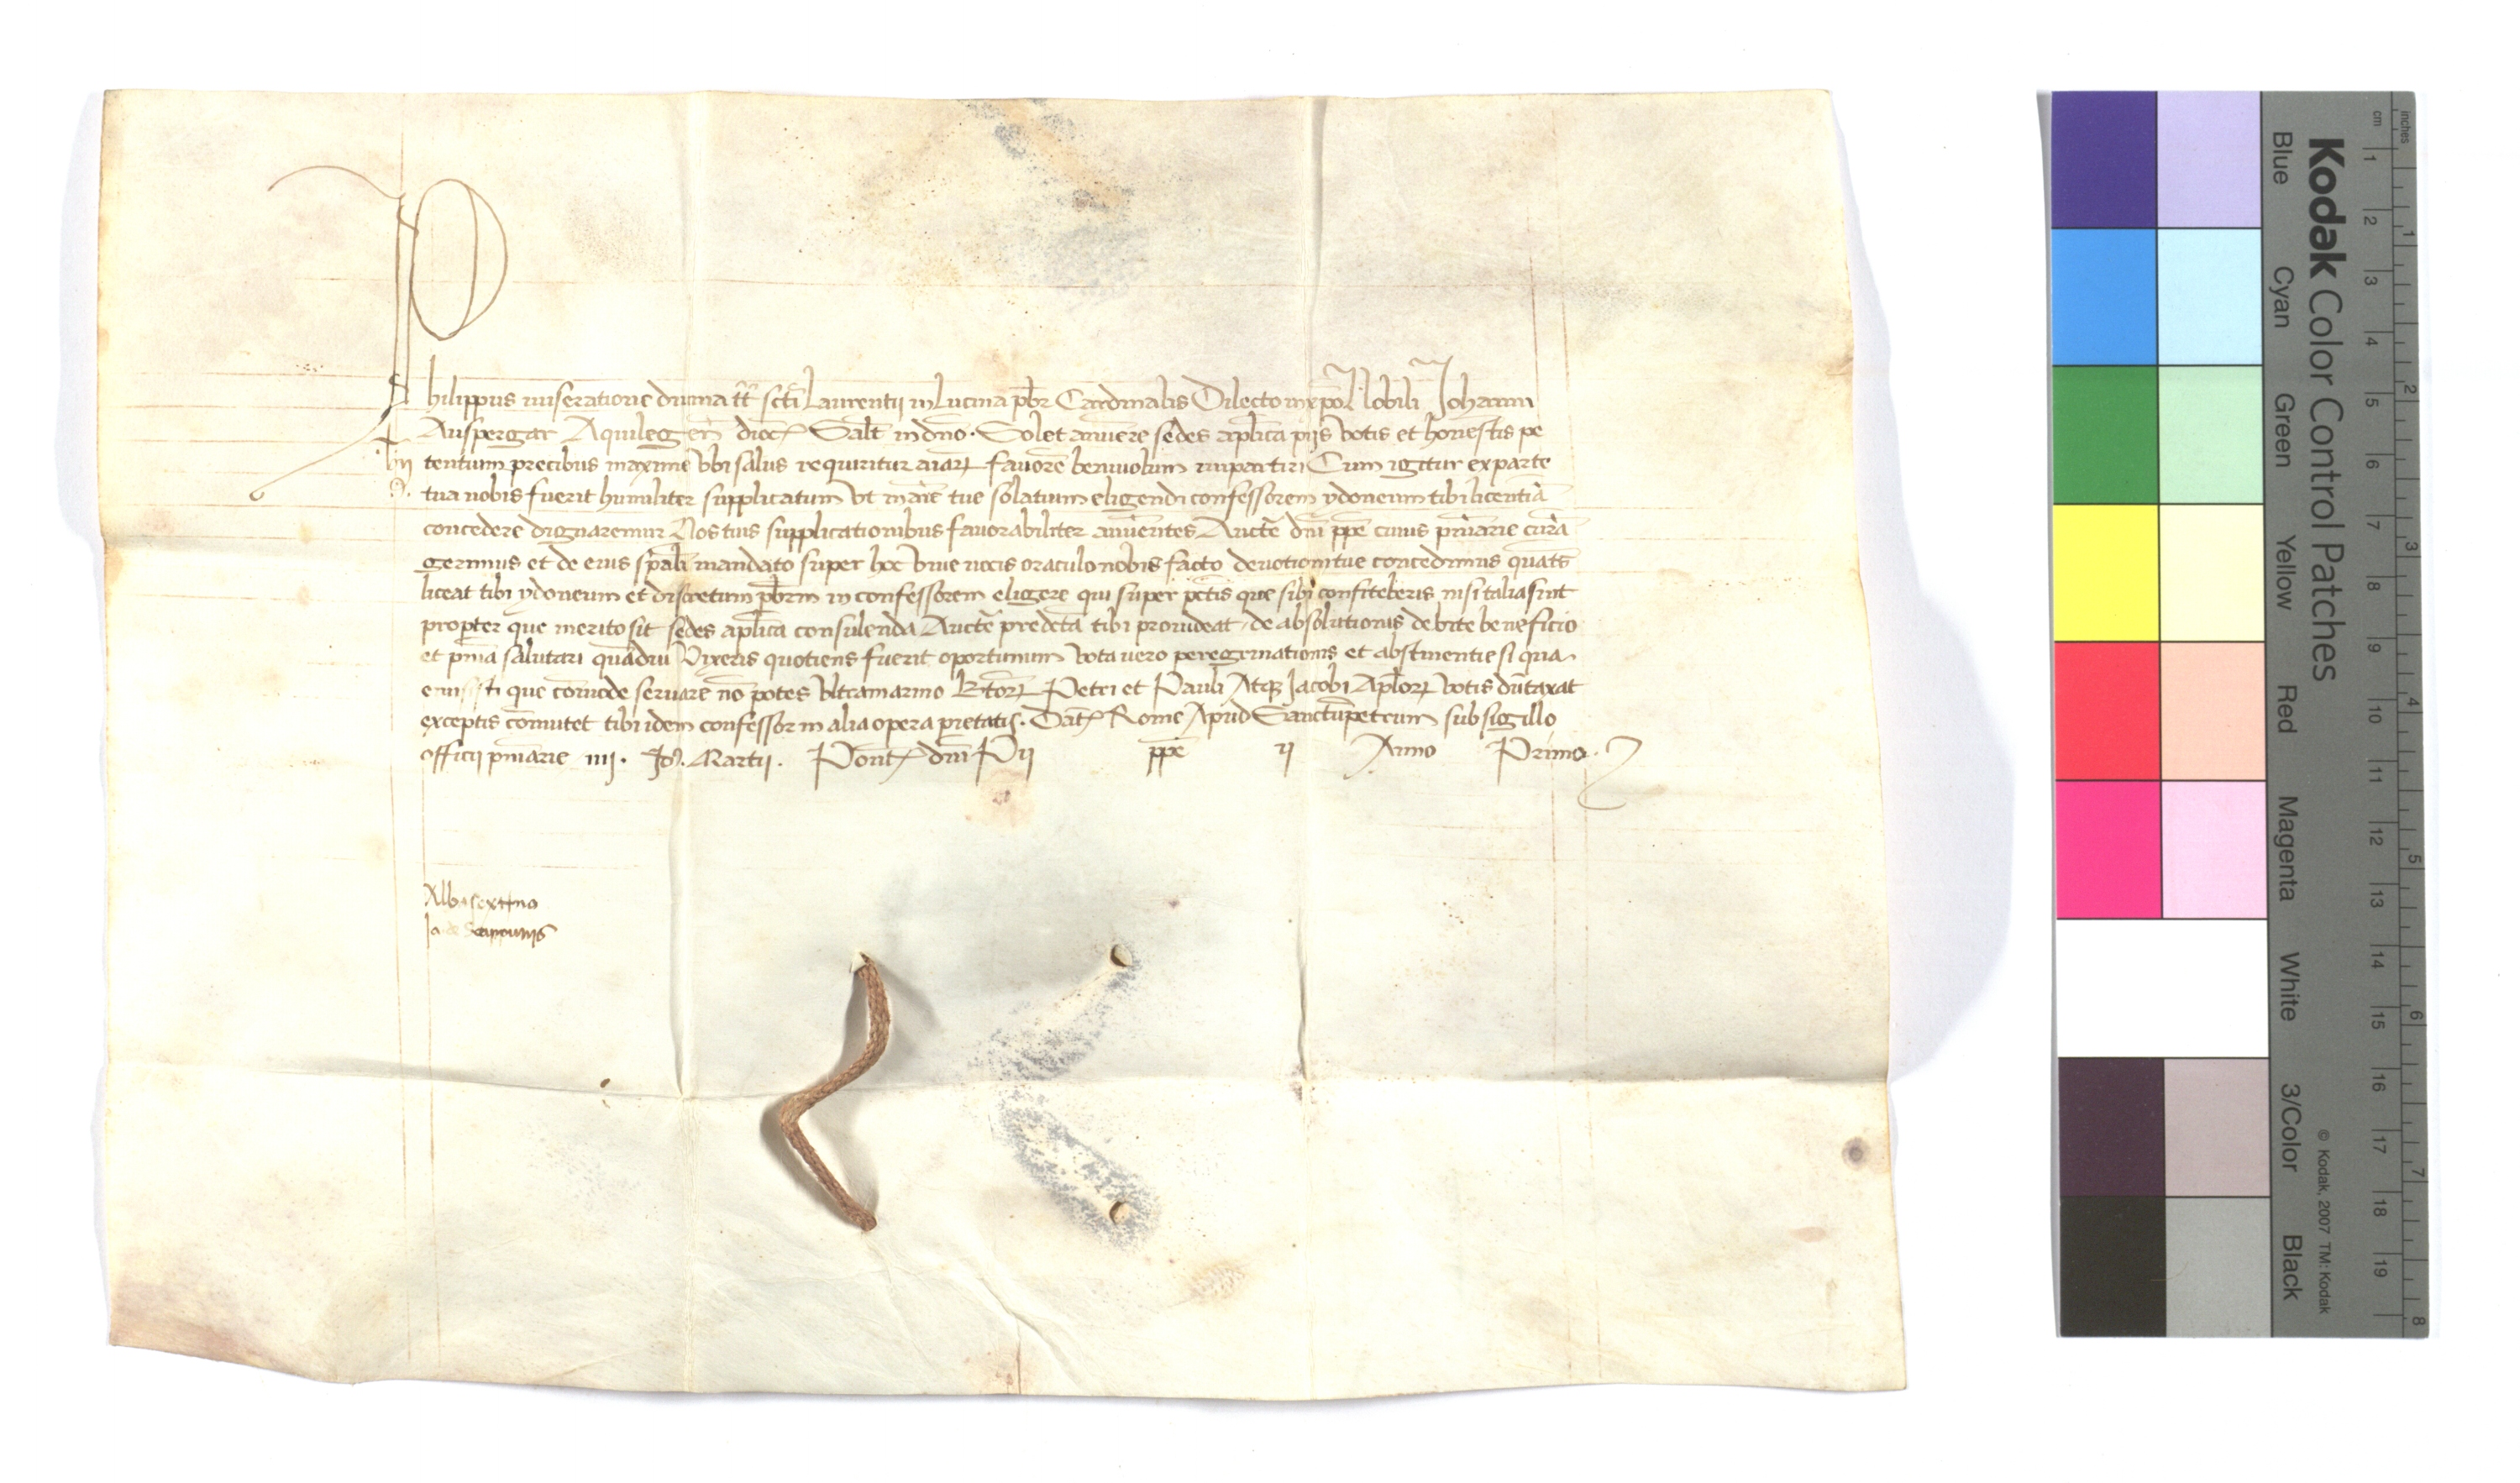 Philippus miseratione diuina tt̄ scti Laurentij in Lucina pbr Cardinalis Dilecto in xpo Nobili Johanni
Auspergar Aquilegen̄ dioc Salt̄ in dn̄o. Solet annuere sedes aplica pijs votis et honestis pe
tentium precibus maxime vbi salus requiritur aīarꝝ fauorē beniuolum impartiri Cum igitur ex parte
tua nobis fuerit humiliter supplicatum vt tue solatium eligendi confessorem ydoneum tibi licentiā
concedere dignaremur Nos tuis supplicationibus fauorabiliter annuentes Aucte dn̄i ppe cuius pn̄iarie curā
gerimus et de eius sp̄ali mandato super hoc viue uocis oraculo nobis facto deuotioni tue concedimus quatn̄s
liceat tibi ydoneum et discretum pbrm in confessorem eligere qui super pctis que sibi confiteberis nisi talia sint
propter que merito sit sedes aplica consulenda Aucte predcta tibi prouideat de absolutionis debite beneficio
et pn̄ia salutari quādiu Vixeris quotiens fuerit oportunum vota uero peregrinationis et abstinentie si qua
emisisti que cōmode seruare nō potes vltramarino btorꝝ Petri et Pauli Atqꝫ Jacobi Aplorꝝ votis dūtaxat
exceptis cōmutet tibi idem confessor in alia opera pietatis. Dat Rome Apud Sanctūpetrum sub sigillo
officij pn̄iarie iiij. Id. Martij. Pont dn̄i Pij ppe ij Anno Primo.
Alb sextino
Ja de
Kodak Color Control Patches
Blue Cyan Green Yellow Red Magenta White 3/Color Black
inches 1 2 3 4 5 6 7 8
cm 1 2 3 4 5 6 7 8 9 10 11 12 13 14 15 16 17 18 19
© Kodak, 2007 TM: Kodak